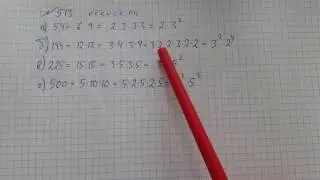 № 513
а) 54 = 6·9 = 2·3·3·3 = 2·3³
б) 144 = 12·12 = 3·4·3·4 = 3·2·2·3·2·2 = 3²·2⁴
в) 225 = 15·15 = 3·5·3·5 = 5²
г) 500 = 5·10·10 = 5·2·5·2·5 = ²·5³